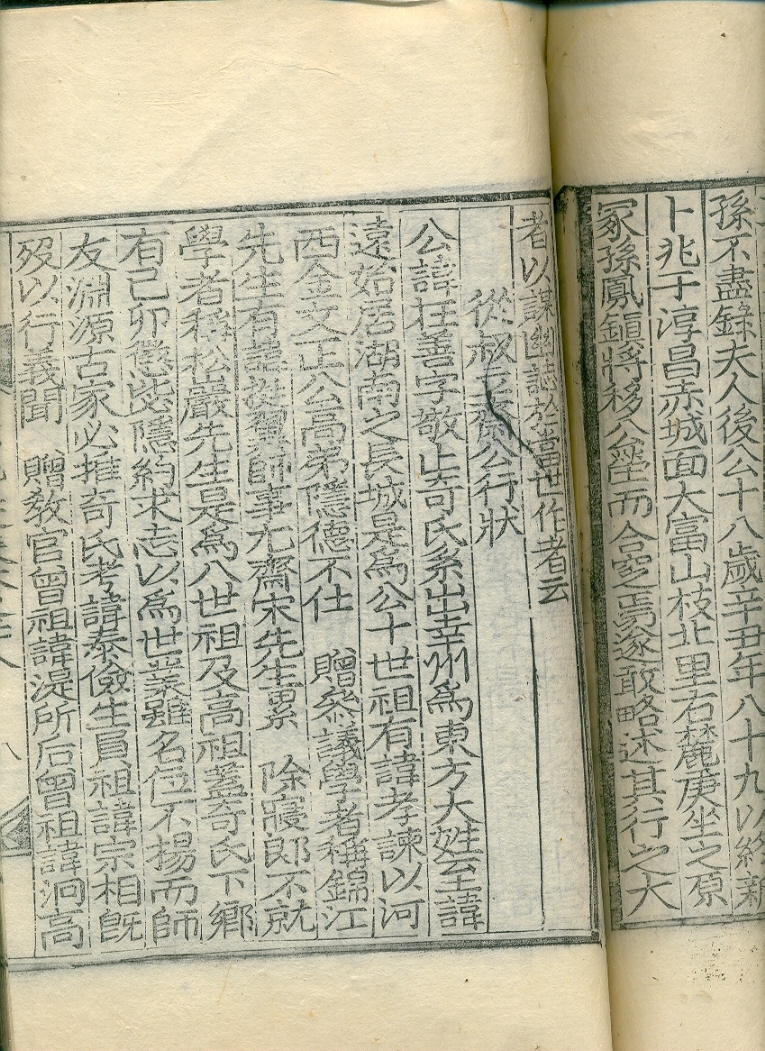 孫不盡錄夫人後公十八歲辛丑年八十九以終新
卜兆于淳昌赤城面大富山枝北里右麓庚坐之原
冢孫鳳鎮將移公塋而合窆焉遂敢略述其行之大
者以謀幽誌於當世作者云
從叔 齋公行狀
公諱在善字敬止奇氏系出幸州爲東方大姓至諱
遠始居湖南之長城是爲公十世祖有諱孝諫以河
西金文正公高弟隱德不仕 贈參議學者稱錦江
先生有諱挺翼師事尤齋宋先生累 除寢郎不就
學者稱松巖先生是爲八世祖及高祖蓋奇氏下鄉
有己卯懲毖隱約求志以爲世業雖名位不揚而師
友淵源古家必推奇氏考諱泰儉生員祖諱宗相旣
歿以行義聞 贈敎官曾祖諱湜所后曾祖諱泂高